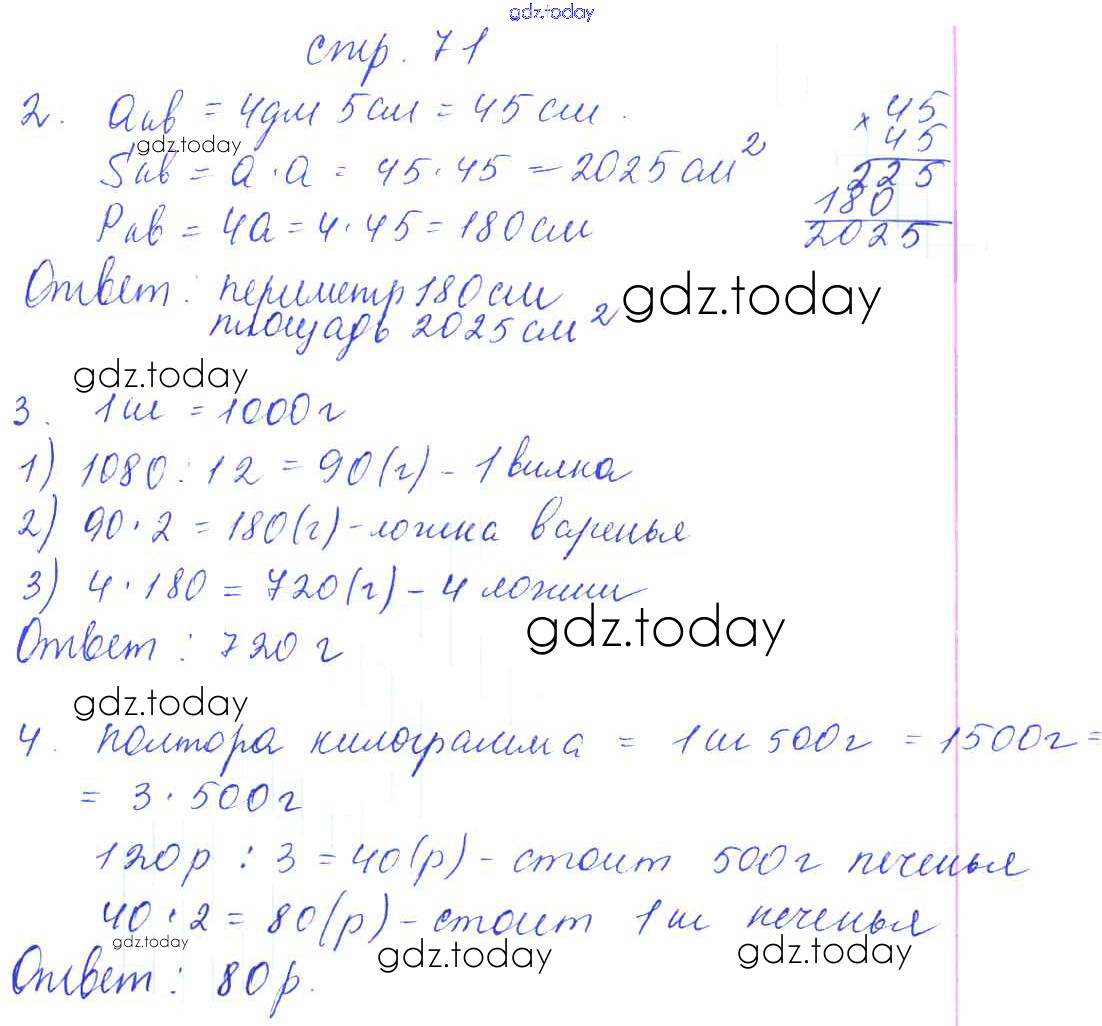 gdz.today
стр. 71
2. aкв = 4дм 5см = 45 см.
gdz.today
Sкв = a · a = 45 · 45 = 2025 см²
Pкв = 4a = 4 · 45 = 180 см
× 45
45
225
180
2025
Ответ: периметр 180 см
площадь 2025 см²
gdz.today
gdz.today
3. 1кг = 1000г
1) 1080 : 12 = 90(г) - 1 вилка
2) 90 · 2 = 180(г) - ложка варенья
3) 4 · 180 = 720(г) - 4 ложки
Ответ: 720 г
gdz.today
gdz.today
4. Полтора килограмма = 1кг 500г = 1500г =
= 3 · 500г
120р : 3 = 40(р) - стоит 500г печенья
40 · 2 = 80(р) - стоит 1кг печенья
gdz.today
gdz.today
gdz.today
Ответ: 80р.